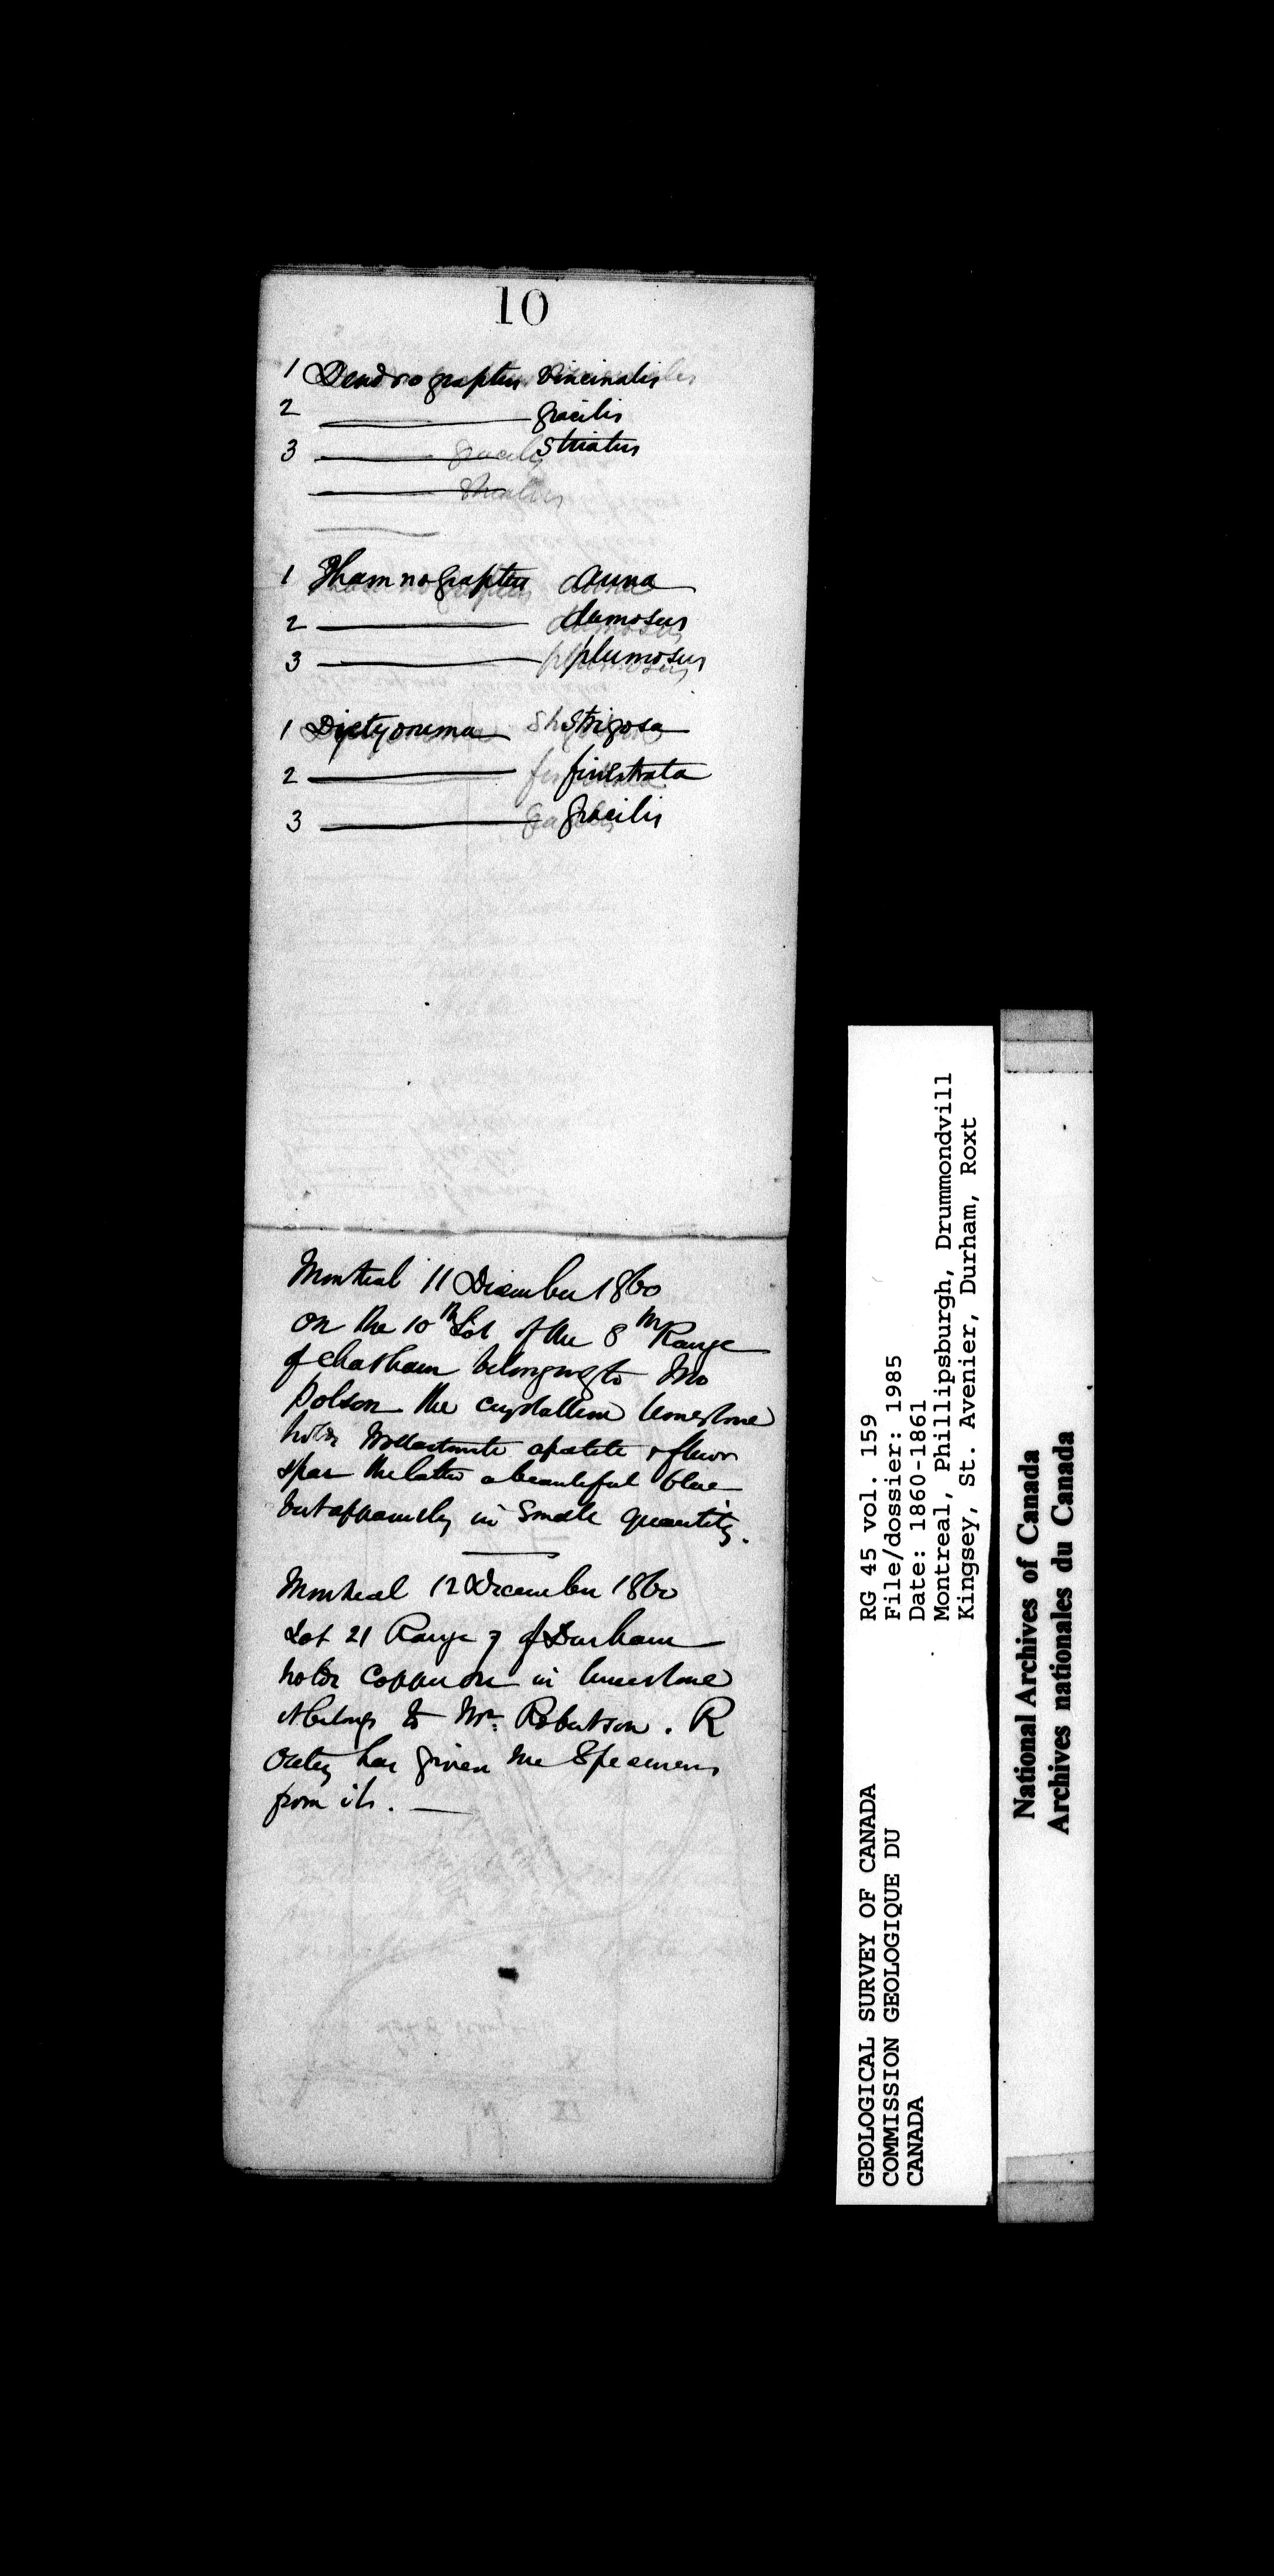 10
1 Dendrograptus Vincinalis
2 ——— gracilis
3 ——— Striatus
1 Thamnograptus
2 ——— dumosus
3 ——— plumosus
1 Dictyonema Strigosa
2 ——— finestrata
3 ——— gracilis
Montreal 11 December 1860
On the 10th Lot of the 8th Range
of Chatham belonging to
the crystalline limestone
holds Wollastonite apatite & fluor
spar the latter a beautiful blue
but apparently in small quantity.
Montreal 12 December 1860
Lot 21 Range 7 of Durham
holds copper ore in limestone
it belongs to Mr. Robertson. R
Oatey has given me Specimens
from it. —
GEOLOGICAL SURVEY OF CANADA
COMMISSION GEOLOGIQUE DU
CANADA
RG 45 vol. 159
File/dossier: 1985
Date: 1860-1861
Montreal, Phillipsburgh, Drummondvill
Kingsey, St. Avenier, Durham, Roxt
National Archives of Canada
Archives nationales du Canada